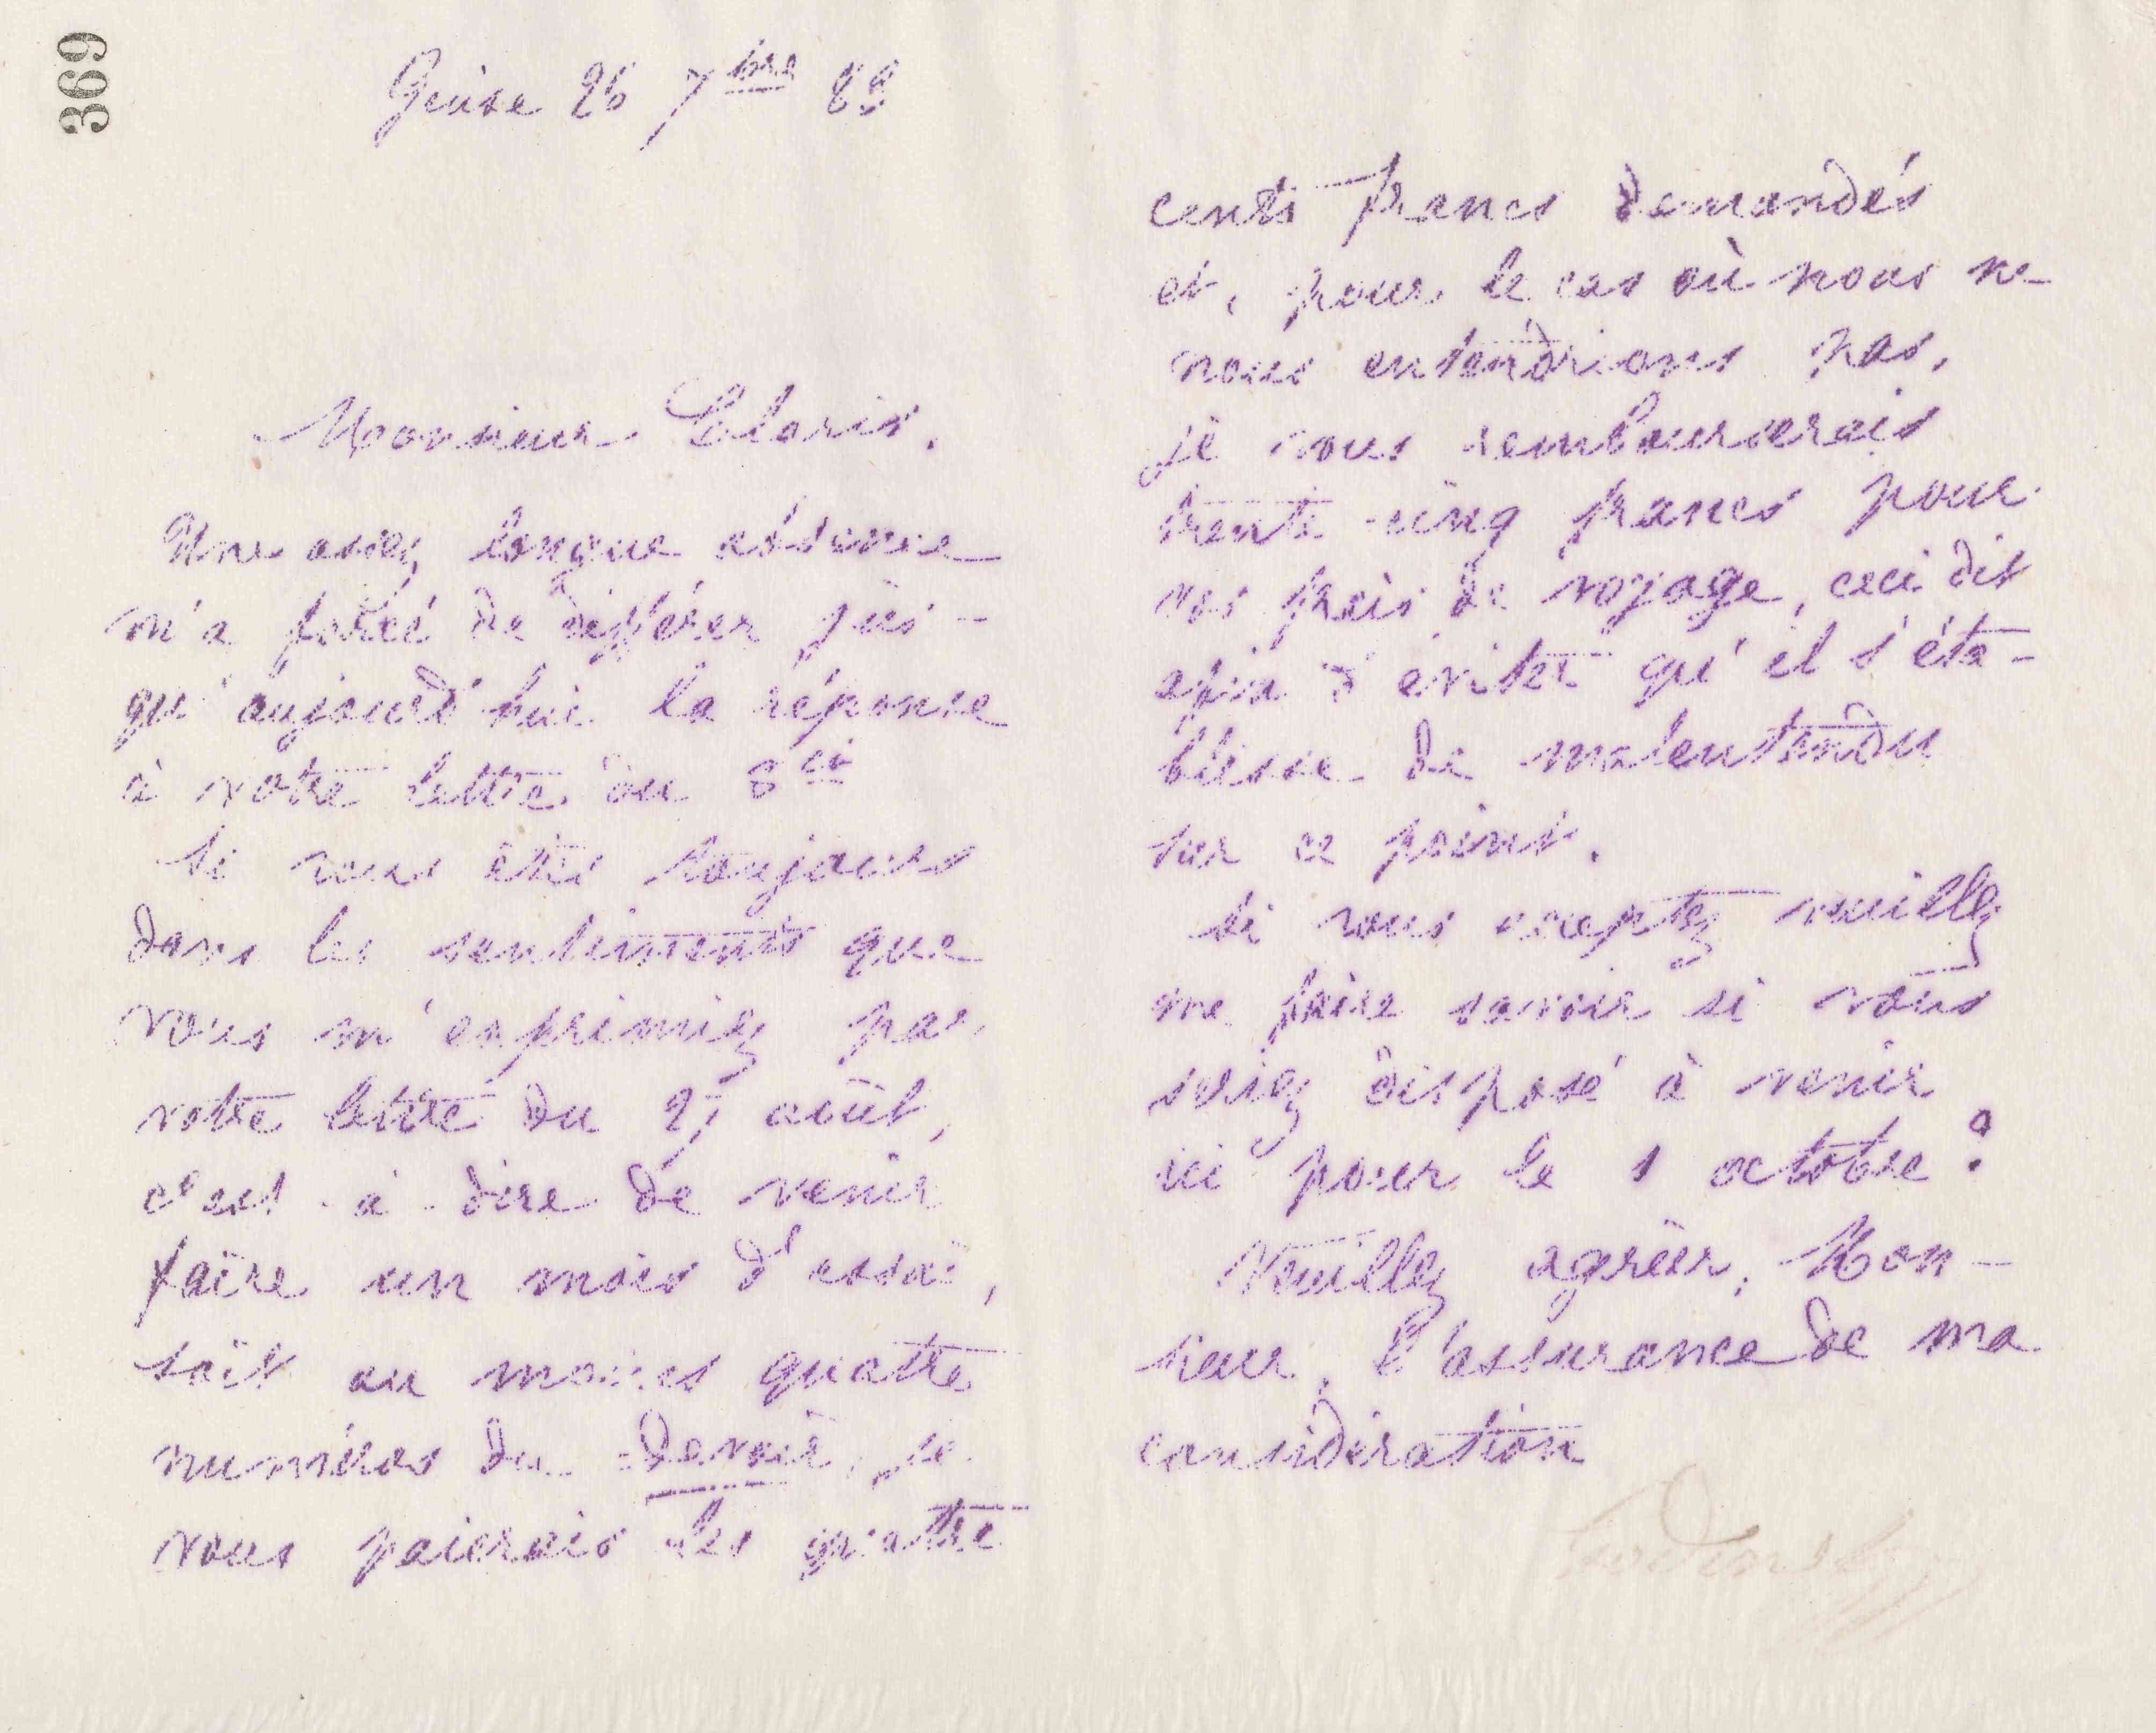 369
Guise 26 7bre 88
Monsieur
Une assez longue absence
m'a forcé de différer jus-
qu'aujourd'hui la réponse
à votre lettre du 8 ct
Si vous êtes toujours
dans les sentiments que
vous m'exprimiez par
votre lettre du 27 août,
c'est-à-dire de venir
faire un mois d'essai,
soit au moins quatre
numéros du Devoir, je
vous paierais les quatre
cents francs demandés
et, pour le cas où nous ne
nous entendrions pas,
je vous rembourserais
trente-cinq francs pour
vos frais de voyage, ceci dit
afin d'éviter qu'il s'éta-
blisse de malentendu
sur ce point.
Si vous acceptez veuillez
me faire savoir si vous
seriez disposé à venir
ici pour le 1 octobre?
Veuillez agréer, Mon-
sieur, l'assurance de ma
considération